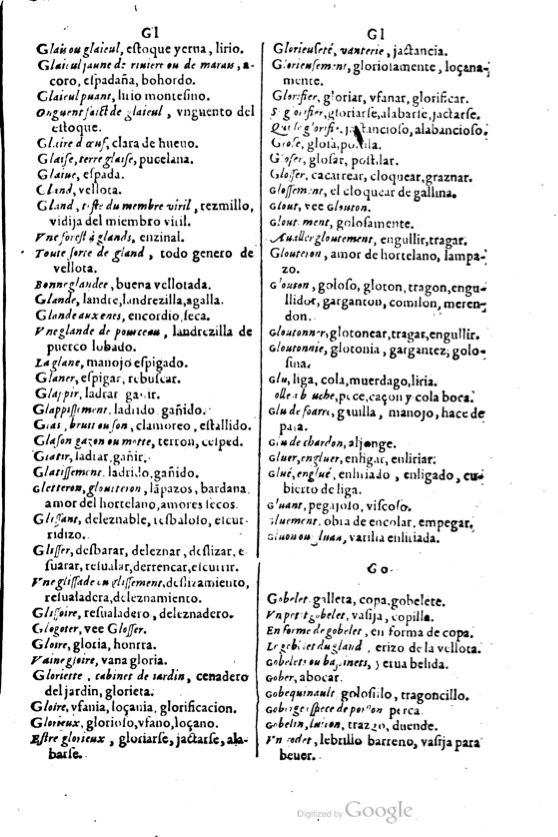 Gl
Glais ou glaieul, eſtoque yerua, lirio.
Glaieul jaune de riuiere ou de marais, a-
coro, eſpadaña, bohordo.
Glaieul puant, lirio monteſino.
Onguent faict de glaieul, vnguento del
eſtoque.
Glaire d'œuf, clara de hueuo.
Glaiſe, terre glaiſe, pucelana.
Glaiue, eſpada.
Gland, vellota.
Gland, teſte du membre viril, rezmillo,
vidija del miembro viril.
Vne foreſt à glands, enzinal.
Toute ſorte de gland, todo genero de
vellota.
Bonne glandee, buena vellotada.
Glande, landre, landrezilla, agalla.
Glande aux enes, encordio, ſeca.
Vne glande de pourceau, landrezilla de
puerco lobado.
La glane, manojo eſpigado.
Glaner, eſpigar, rebuſcar.
Glappir, ladrar gañir.
Glappiſſement, ladrido gañido.
Glas, bruit ou ſon, clamoreo, eſtallido.
Glaſon gazon ou motte, terron, ceſped.
Glatir, ladrar, gañir.
Glatiſſement, ladrido, gañido.
Gletteron, glouteron, lãpazos, bardana,
amor del hortelano, amores ſecos.
Gliſſant, deleznable, reſbaloſo, eſcur-
ridizo.
Gliſſer, desbarar, deleznar, deſlizar, e
ſuarar, reſualar, derrencar, eſcurrir.
Vne gliſſade ou gliſſement, deſlizamiento,
reſualadera, deleznamiento.
Gliſſoire, reſualadero, deleznadero.
Glogoter, vee Gloſſer.
Gloire, gloria, honrra.
Vaine gloire, vana gloria.
Gloriette, cabinet de iardin, cenadero
del jardin, glorieta.
Gloire, vfania, loçania, glorificacion.
Glorieux, glorioſo, vfano, loçano.
Eſtre glorieux, gloriarſe, jactarſe, ala-
barſe.
Gl
Glorieuſeté, vanterie, jactancia.
Glorieuſement, glorioſamente, loçana-
mente.
Glorifier, gloriar, vfanar, glorificar.
S glorifier, gloriarſe, alabarſe, jactarſe.
Qui ſe glorifie, jactancioſo, alabancioſo.
Gloſe, gloſa, poſtila.
Gloſer, gloſar, poſtilar.
Gloſſer, cacarrear, cloquear, graznar.
Gloſſement, el cloquear de gallina.
Glout, vee Glouton.
Gloutement, goloſamente.
Aualler gloutement, engullir, tragar.
Glouteron, amor de hortelano, lampa-
zo.
Glouton, goloſo, gloton, tragon, engu-
llidor, garganton, comilon, meren-
don.
Gloutonner, glotonear, tragar, engullir.
Gloutonnie, glotonia, gargantez, golo-
ſina.
Glu, liga, cola, muerdago, liria.
pece, caçon y cola boca.
Glu de foarre, gauilla, manojo, hace de
paja.
Glu de chardon, aljonge.
Gluer, engluer, enligar, enliriar.
Glué, englué, enliriado, enligado, cu-
bierto de liga.
Gluant, pegajoſo, viſcoſo.
Gluement, obra de encolar, empegar.
varilla enliriada.
Go
Gobelet, galleta, copa, gobelete.
Vn petit gobelet, vaſija, copilla.
En forme de gobelet, en forma de copa.
Le gobelet du gland, erizo de la vellota.
Gobelets ou baſſinets, yerua belida.
Gober, abocar.
Gobequinault goloſillo, tragoncillo.
Goberge eſpece de poiſſon perca.
Gobelin, lutton, trazgo, duende.
Vn godet, lebrillo barreno, vaſija para
beuer.
Digitized by Google